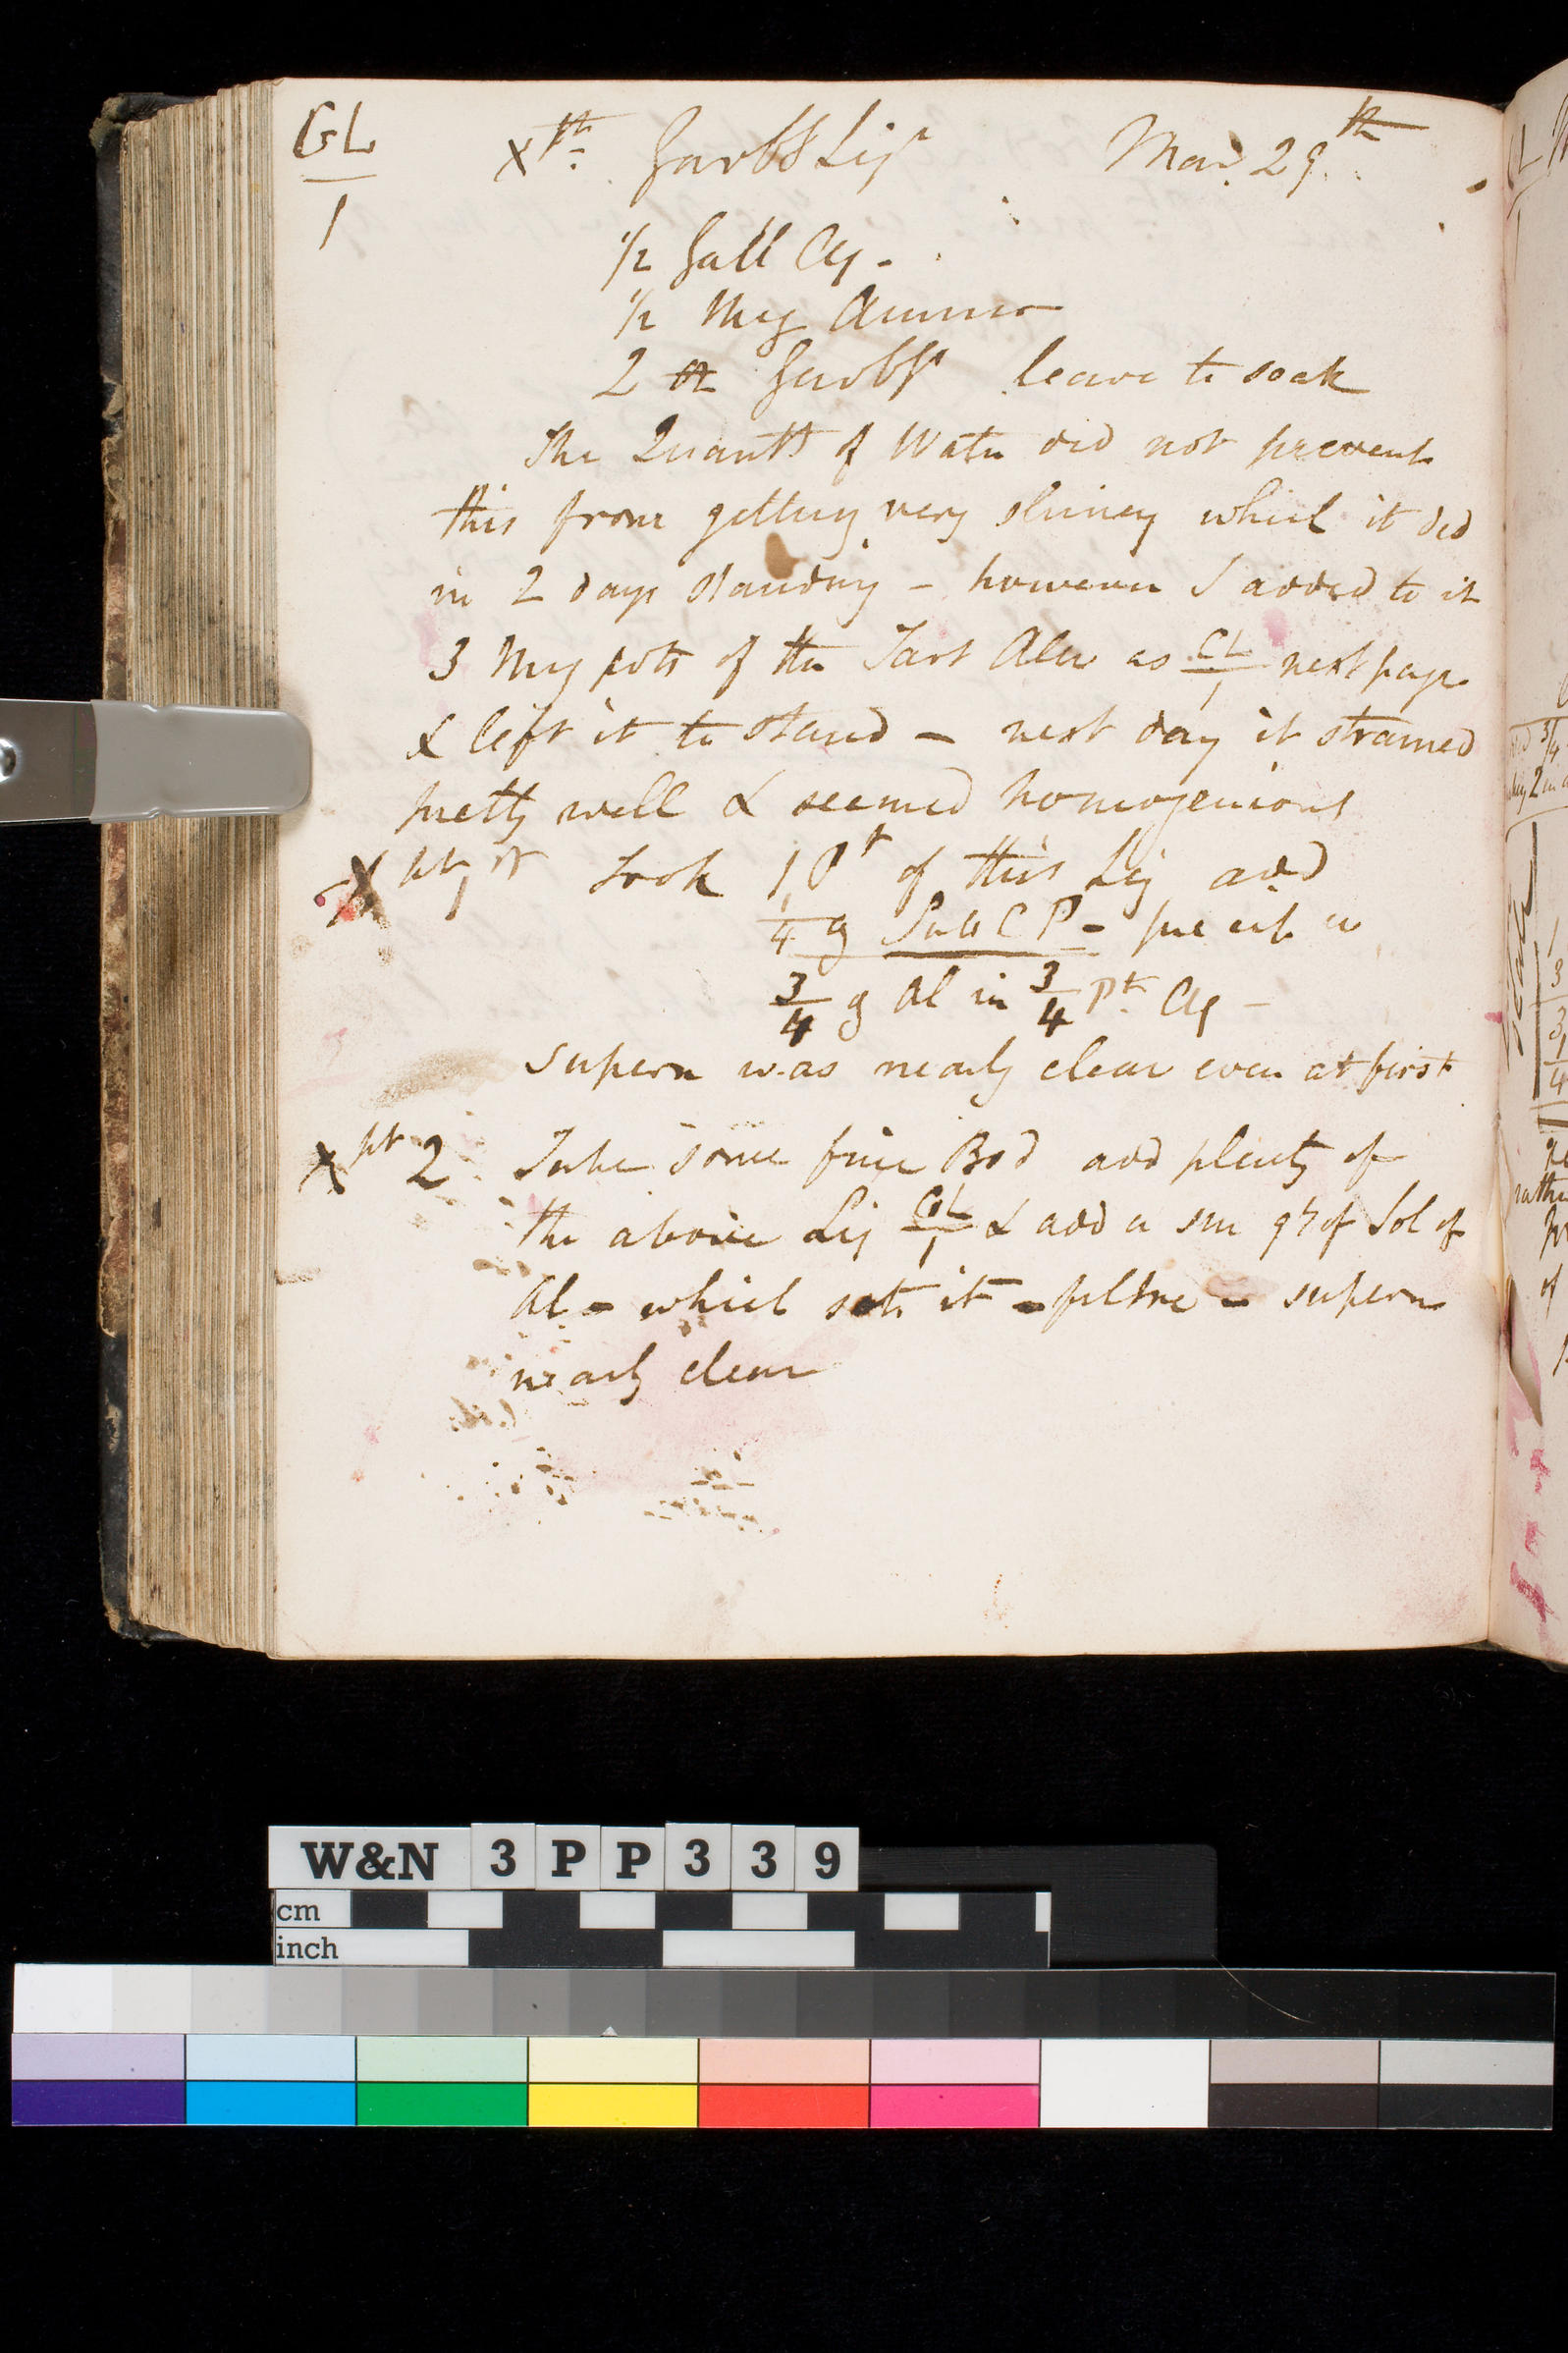 GL
1
X pt. Garbs Liq Mar. 29th
1/2 Gall Aq -
1/2 Mug Ammo
2 oz Garbs leave to soak
The Quanty of Water did not prevent
this from getting very slimey which it did
in 2 days standing - however I added to it
3 Mug pots of the Tart Alu as CL/1 next page
& left it to stand - next day it strained
pretty well & seemed homogenious
X pt 1st Took 1 Pt of this Liq add
1/4 g Sub C P -
3/4 g Al in 3/4 Pt. Aq -
supern was nearly clear even at first
X pt 2 Take some fine Bod add plenty of
the above Liq GL/1 & add a sm qy of Sol of
Al - which sets it - filtre - supern
nearly clear
W&N 3PP339
cm
inch